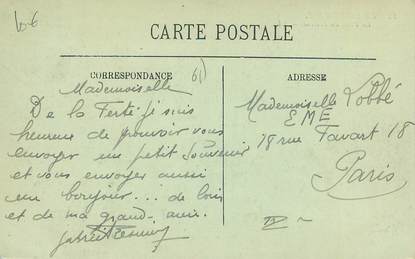 6€
CARTE POSTALE
CORRESPONDANCE
61
ADRESSE
Mademoiselle
De la Ferté je suis
heureuse de pouvoir vous
envoyer un petit souvenir
et vous envoyer aussi
un bonjour... de loin
et de ma grand
Mademoiselle Robbé
EME
18 rue Favart 18
Paris